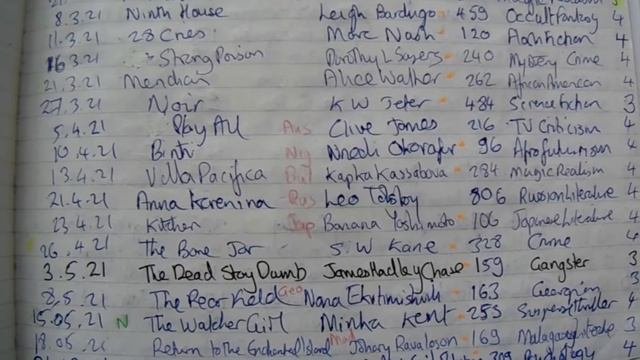 8.3.21 Ninth House Leigh Bardugo 459 Occult fantasy 4
11.3.21 28 Cries Marc Nash 120 Flash Fiction 4
16.3.21 Strong Poison Dorothy L Sayers 240 Mystery Crime 4
21.3.21 Meridian Alice Walker 262 African American 4
27.3.21 Noir K W Jeter 484 Science Fiction 3
5.4.21 Play All Aus Clive James 216 TV Criticism 4
10.4.21 Binti Nig Nnedi Okorafor 96 Afrofuturism 4
13.4.21 Villa Pacifica Bul Kapka Kassabova 284 Magic Realism 4
21.4.21 Anna Karenina Rus Leo Tolstoy 806 Russian Literature 4
23.4.21 Kitchen Jap Banana Yoshimoto 106 Japanese Literature 4
26.4.21 The Bone Jar S. W Kane 328 Crime 4
3.5.21 The Dead Stay Dumb James Hadley Chase 159 Gangster 3
8.5.21 The Pear Field Geo Nana Ekvtimishvili 163 Georgian 3
15.05.21 N The Watcher Girl Minka Kent 255 Suspense Thriller 4
18.05.21 Return to the Enchanted Island Mad Johary Ravaloson 169 Malagasy 3